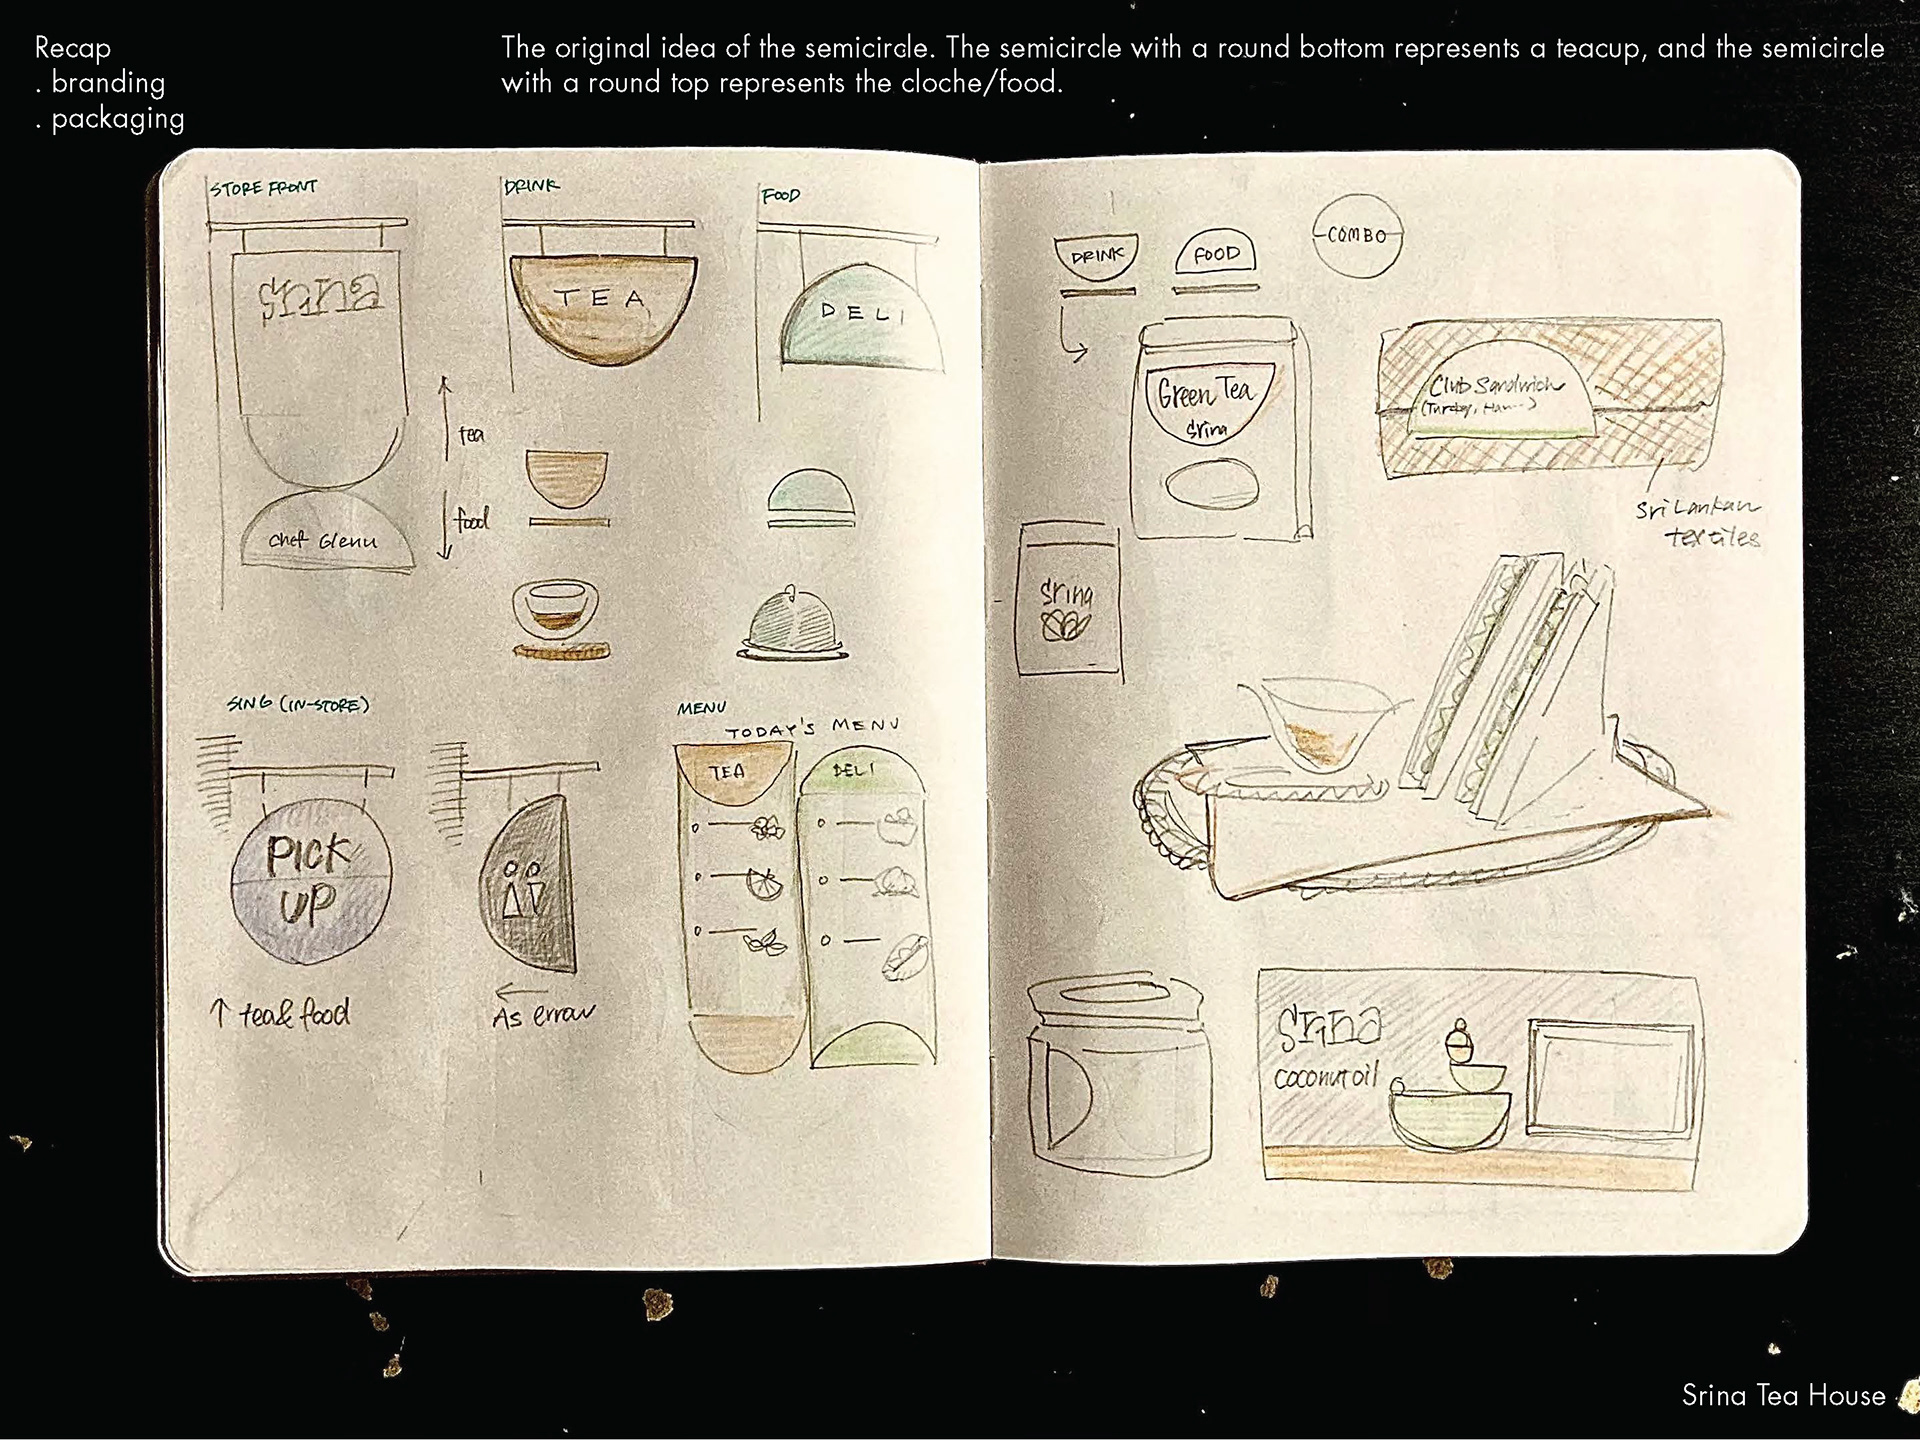 Recap
. branding
. packaging
The original idea of the semicircle. The semicircle with a round bottom represents a teacup, and the semicircle
with a round top represents the cloche/food.
STORE FRONT
srina
tea
food
Chef Glenn
DRINK
TEA
FOOD
DELI
SING (IN-STORE)
PICK
UP
↑ tea& food
←
As errow
MENU
TODAY'S MENU
TEA
DELI
DRINK
FOOD
COMBO
Green Tea
srina
Club Sandwich
(Turkey, Ham
Sri Lankan
textiles
srina
srina
coconut oil
Srina Tea House